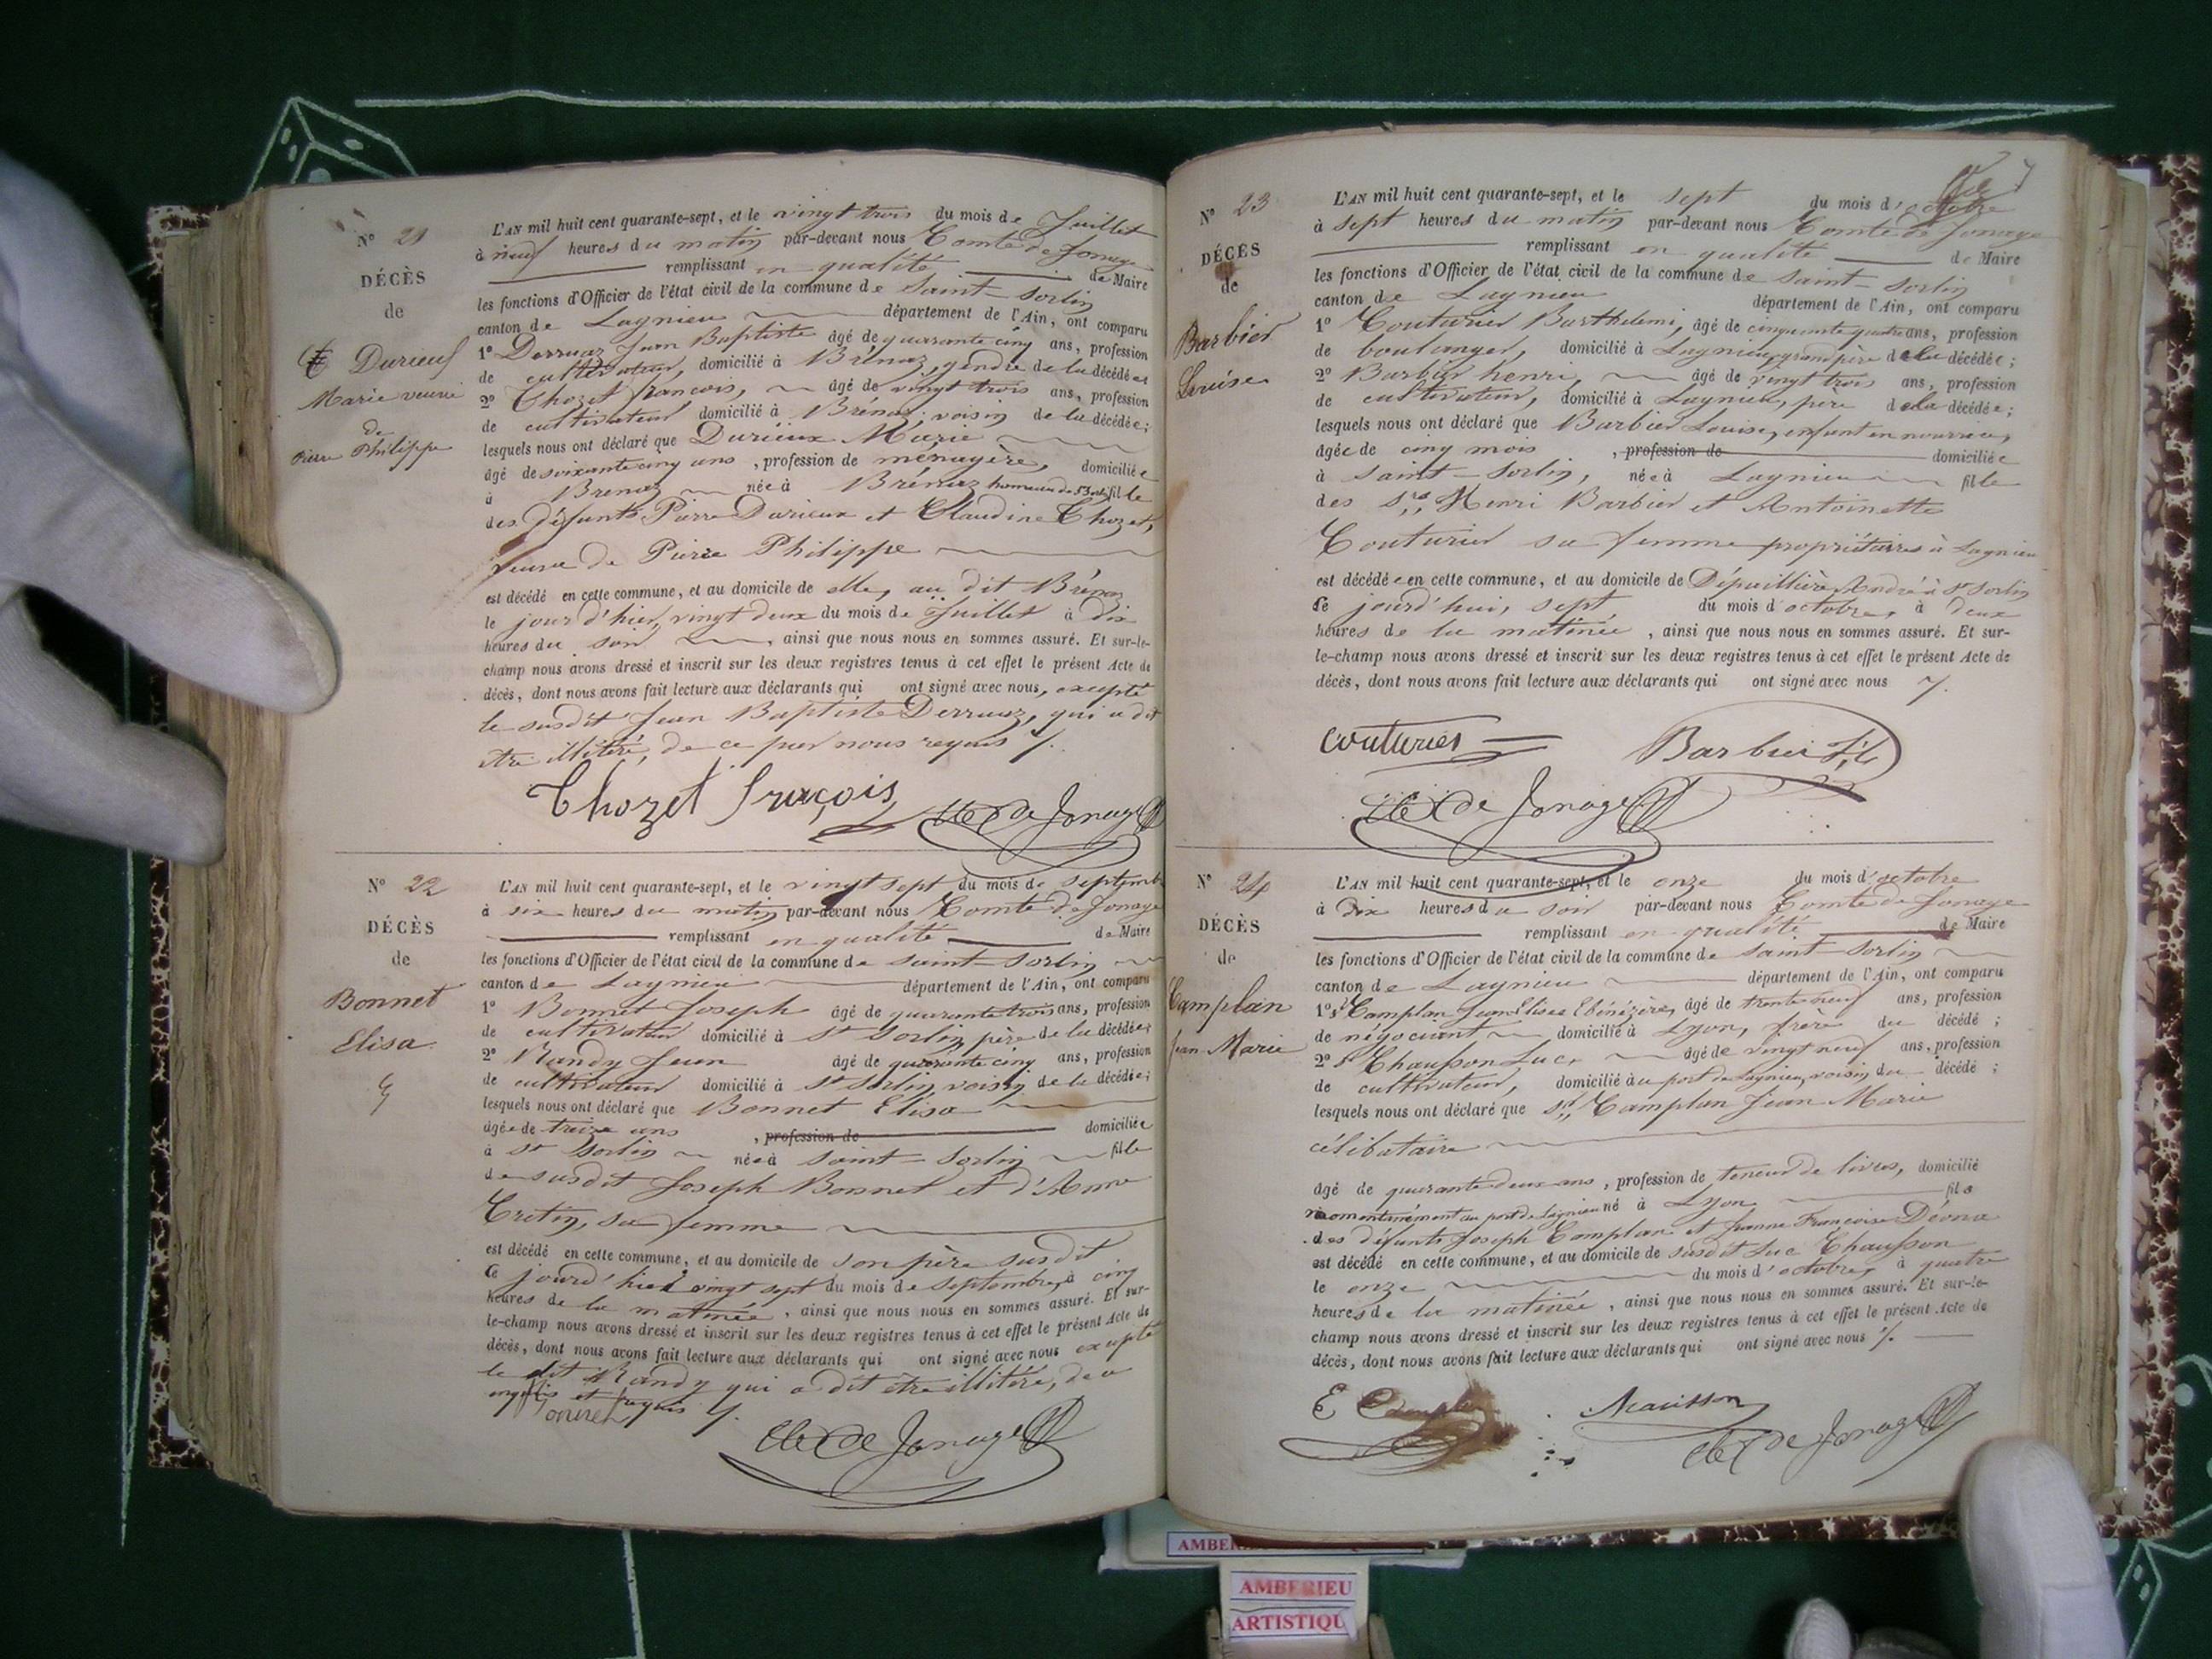 N° 21
DÉCÈS
de
Durieuf
Marie veuve
de
Pierre Philippe
L'AN mil huit cent quarante-sept, et le vingt trois du mois de Juillet
à neuf heures du matin par-devant nous Comte de Jonage
remplissant en qualité de Maire
les fonctions d'Officier de l'état civil de la commune de Saint-Sorlin
canton de Lagnieu département de l'Ain, ont comparu
1° Derruaz Jean Baptiste âgé de quarante cinq ans, profession
de cultivateur, domicilié à Brénaz, gendre de la décédée
2° Chozet francois, âgé de vingt trois ans, profession
de cultivateur domicilié à Brénaz, voisin de la décédée;
lesquels nous ont déclaré que Durieux Marie
âgé de soixante cinq ans, profession de ménagère, domiciliée
à Brenaz née à Brénaz hameau de St Sorlin fille
des défunts Pierre Durieux et Claudine Chozet,
veuve de Pierre Philippe
est décédé en cette commune, et au domicile de elle, au dit Brénaz
le jour d'hier, vingt deux du mois de Juillet à dix
heures du soir, ainsi que nous nous en sommes assuré. Et sur-le-
champ nous avons dressé et inscrit sur les deux registres tenus à cet effet le présent Acte de
décès, dont nous avons fait lecture aux déclarants qui ont signé avec nous, excepté
le susdit Jean Baptiste Derruaz, qui a dit
être illitéré, de ce par nous requis /.
Chozet françois
Cte de Jonage
N° 22
DÉCÈS
de
Bonnet
Elisa
L'AN mil huit cent quarante-sept, et le vingt sept du mois de septembre
à six heures du matin par-devant nous Comte de Jonage
remplissant en qualité de Maire
les fonctions d'Officier de l'état civil de la commune de saint-Sorlin
canton de Lagnieu département de l'Ain, ont comparu
1° Bonnet Joseph âgé de quarante trois ans, profession
de cultivateur domicilié à St Sorlin père de la décédée;
2° Randy Jean âgé de quarante cinq ans, profession
de cultivateur domicilié à St Sorlin voisin de la décédée;
lesquels nous ont déclaré que Bonnet Elisa
âgée de treize ans, profession de domiciliée
à St Sorlin née à Saint-Sorlin fille
de susdit Joseph Bonnet et d'Anne
Cretin, sa femme
est décédé en cette commune, et au domicile de son père susdit
le jourd'hier vingt sept du mois de septembre, à cinq
heures de la matinée, ainsi que nous nous en sommes assuré. Et sur-
le-champ nous avons dressé et inscrit sur les deux registres tenus à cet effet le présent Acte de
décès, dont nous avons fait lecture aux déclarants qui ont signé avec nous excepté
le dit Randy qui a dit être illitéré, de ce
et requis /.
Bonnet
Cte de Jonage
N° 23
DÉCÈS
de
Barbier
Louise
L'AN mil huit cent quarante-sept, et le sept du mois d'octobre
à sept heures du matin par-devant nous Comte de Jonage
remplissant en qualité de Maire
les fonctions d'Officier de l'état civil de la commune de Saint-Sorlin
canton de Lagnieu département de l'Ain, ont comparu
1° Couturier Barthelemi, âgé de cinquante quatre ans, profession
de boulanger, domicilié à Lagnieu, grand père de la décédée;
2° Barbier henri, âgé de vingt trois ans, profession
de cultivateur, domicilié à Lagnieu, père de la décédée;
lesquels nous ont déclaré que Barbier Louise, enfant en nourrice,
âgée de cinq mois, profession de domiciliée
à saint-Sorlin, née à Lagnieu fille
des Srs Henri Barbier et Antoinette
Couturier sa femme propriétaires à Lagnieu
est décédée en cette commune, et au domicile de Dépaillière André à St Sorlin
ce jourd'hui, sept du mois d'octobre, à deux
heures de la matinée, ainsi que nous nous en sommes assuré. Et sur-
le-champ nous avons dressé et inscrit sur les deux registres tenus à cet effet le présent Acte de
décès, dont nous avons fait lecture aux déclarants qui ont signé avec nous /.
Couturier
Barbier fils
Cte de Jonage
N° 24
DÉCÈS
de
Camplan
Jean Marie
L'AN mil huit cent quarante-sept, et le onze du mois d'octobre
à dix heures du soir par-devant nous Comte de Jonage
remplissant en qualité de Maire
les fonctions d'Officier de l'état civil de la commune de saint-Sorlin
canton de Lagnieu département de l'Ain, ont comparu
1° Sr Camplan Jean Elisée Ebénézère, âgé de trente neuf ans, profession
de négociant domicilié à Lyon, frère du décédé;
2° Sr Chausson Luc, âgé de vingt neuf ans, profession
de cultivateur, domicilié au port de Lagnieu, voisin du décédé;
lesquels nous ont déclaré que Sr Camplan Jean Marie
célibataire
âgé de quarante deux ans, profession de teneur de livres, domicilié
momentanément au port de Lagnieu né à Lyon fils
des défunts Joseph Camplan et Jeanne Françoise Déona
est décédé en cette commune, et au domicile de susdit Luc Chausson
le onze du mois d'octobre, à quatre
heures de la matinée, ainsi que nous nous en sommes assuré. Et sur-le-
champ nous avons dressé et inscrit sur les deux registres tenus à cet effet le présent Acte de
décès, dont nous avons fait lecture aux déclarants qui ont signé avec nous /.
E Camplan
Cte de Jonage
AMBERIEU
ARTISTIQU